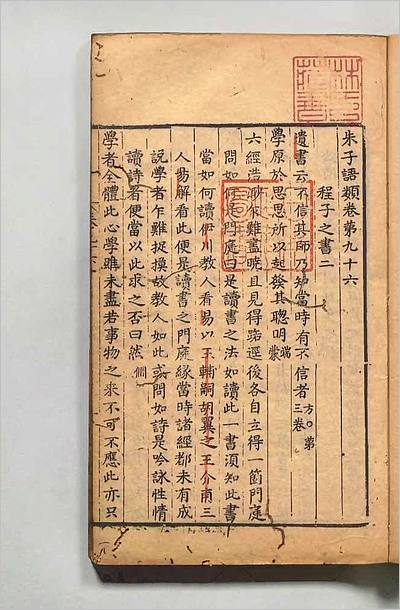 朱子語類卷第九十六
程子之書二
遺書云不信其師乃知當時有不信者 方〇第三卷
學原於思思所以起發其聰明 端蒙
六經浩渺乍難盡曉且見得路逕後各自立得一箇門庭
問如何是門庭曰是讀書之法如讀此一書須知此書
當如何讀伊川教人看易以王輔嗣胡翼之王介甫三
人易解看此便是讀書之門庭緣當時諸經都未有成
說學者乍難捉摸故教人如此或問如詩是吟詠性情
讀詩者便當以此求之否曰然 僩
學者全體此心學雖未盡若事物之來不可不應此亦只